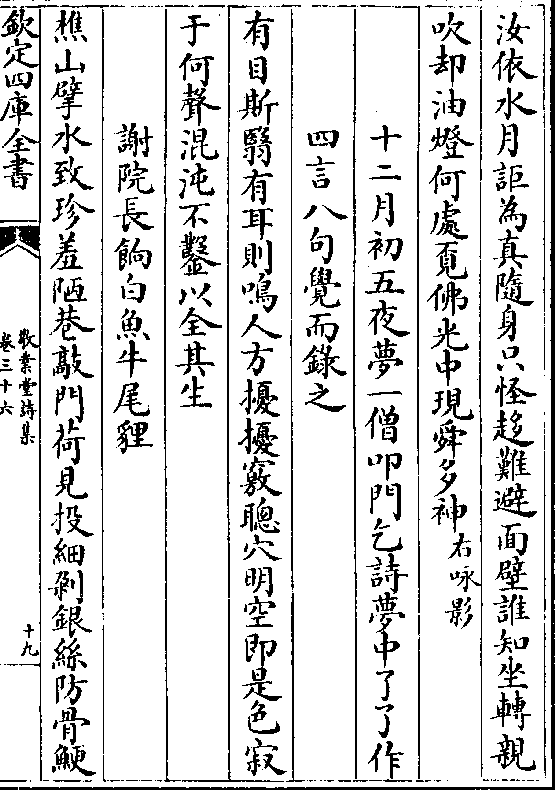 汝依水月詎為真隨身只怪趍難避面壁誰知坐轉親
吹却油燈何處覔佛光中現舜多神右咏影
十二月初五夜夢一僧叩門乞詩夢中了了作
四言八句覺而錄之
有目斯翳有耳則鳴人方擾擾竅聰穴明空即是色寂
于何聲混沌不鑿以全其生
謝院長餉白魚牛尾貍
樵山擘水致珍羞陋巷敲門荷見投細剁銀絲防骨鯁
欽定四庫全書
敬業堂詩集
卷三十六
十九